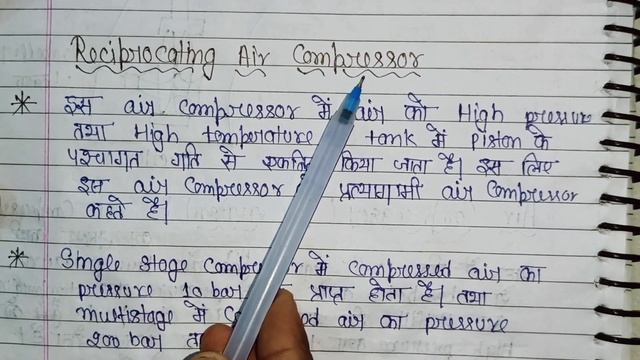 Reciprocating Air Compressor
* इस air compressor में air को High pressure
तथा High temperature tank में piston के
पश्चागत गति से एकत्रित किया जाता है। इस लिए
इस air compressor प्रत्यागामी air compressor
कहते है।
* Single stage compressor में compressed air का
pressure 10 bar प्राप्त होता है। तथा
multistage में air का pressure
200 bar